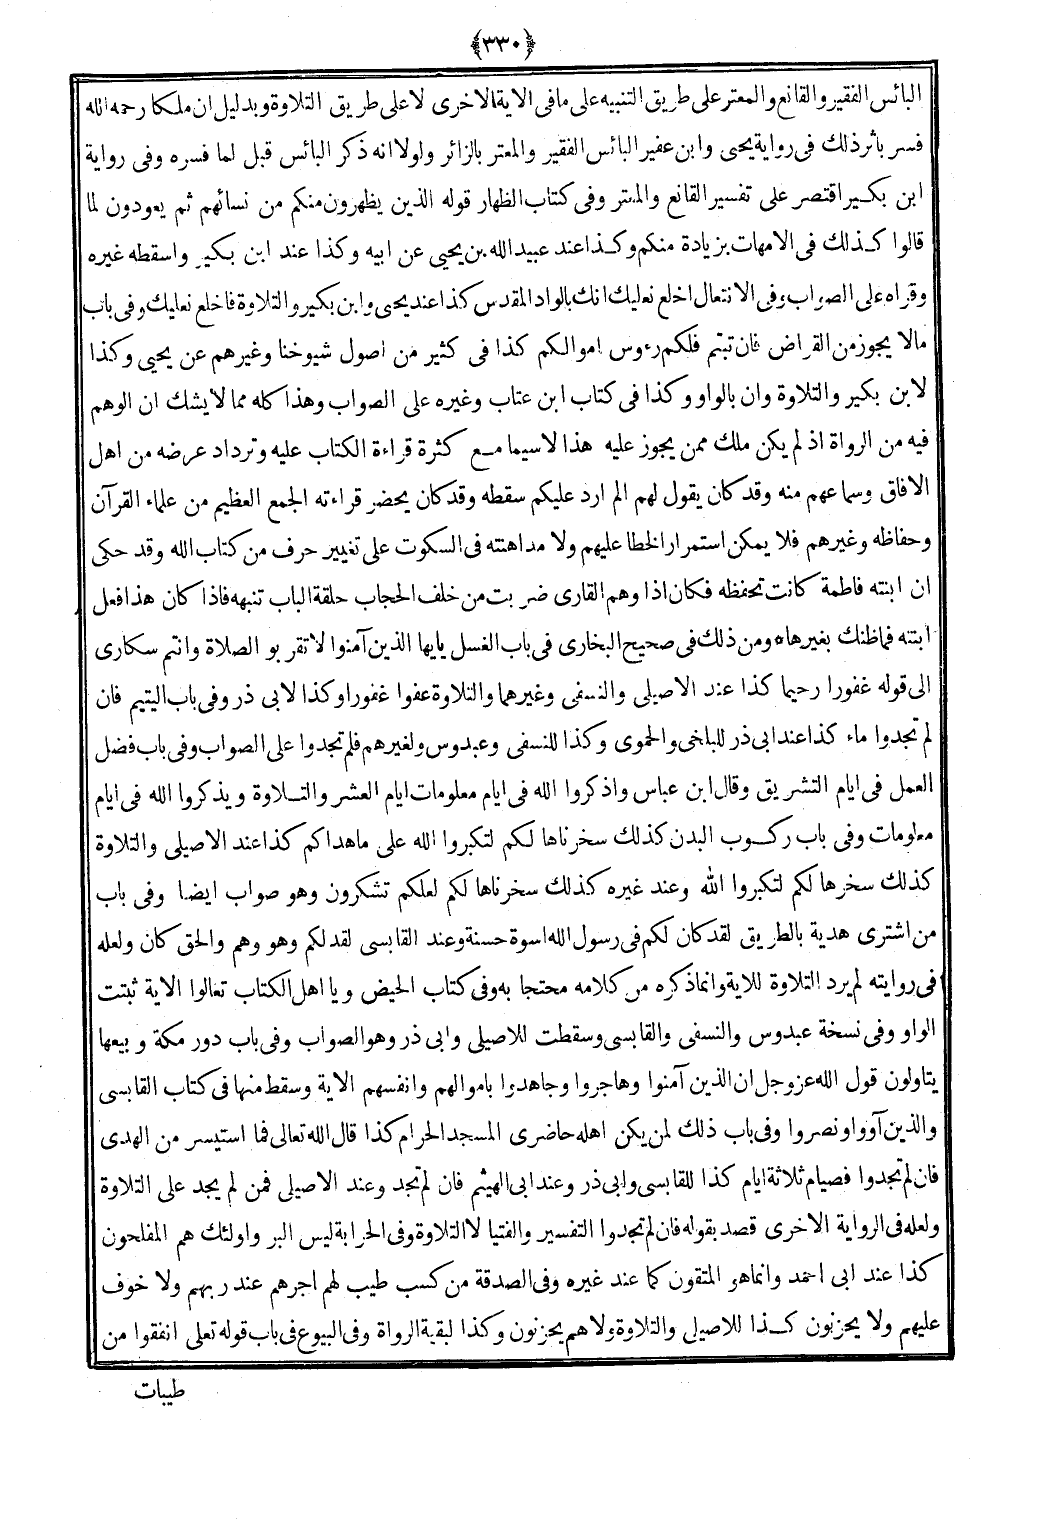 ﴿٣٣٠﴾
البائس الفقير والقانع والمعتر على طريق التنبيه على ما فى الاية الاخرى لا على طريق التلاوة وبدليل ان ملكا رحمه الله
فسر باثر ذلك فى رواية يحيى وابن عفير البائس الفقير والمعتر بالزائر ولولا انه ذكر البائس قبل لما فسره وفى رواية
ابن بكير اقتصر على تفسير القانع والمعتر وفى كتاب الظهار قوله الذين يظهرون منكم من نسائهم ثم يعودون لما
قالوا كذلك فى الامهات بزيادة منكم وكذا عند عبيد الله بن يحيى عن ابيه وكذا عند ابن بكير واسقطه غيره
وقراه على الصواب وفى الانتعال اخلع نعليك انك بالواد المقدس كذا عند يحيى وابن بكير والتلاوة فاخلع نعليك وفى باب
مالا يجوز من القراض فان تبتم فلكم رءوس اموالكم كذا فى كثير من اصول شيوخنا وغيرهم عن يحيى وكذا
لابن بكير والتلاوة وان بالواو وكذا فى كتاب ابن عتاب وغيره على الصواب وهذا كله مما لا يشك ان الوهم
فيه من الرواة اذ لم يكن ملك ممن يجوز عليه هذا لاسيما مع كثرة قراءة الكتاب عليه وترداد عرضه من اهل
الافاق وسماعهم منه وقد كان يقول لهم الم ارد عليكم سقطه وقد كان يحضر قراءته الجمع العظيم من علماء القرآن
وحفاظه وغيرهم فلا يمكن استمرار الخطا عليهم ولا مداهنته فى السكوت على تغيير حرف من كتاب الله وقد حكى
ان ابنته فاطمة كانت تحفظه فكان اذا وهم القارى ضربت من خلف الحجاب حلقة الباب تنبهه فاذا كان هذا فعل
ابنته فما ظنك بغيرها ه ومن ذلك فى صحيح البخارى فى باب الغسل يايها الذين آمنوا لا تقربو الصلاة وانتم سكارى
الى قوله غفورا رحيما كذا عند الاصيلى والنسفى وغيرهما والتلاوة عفوا غفورا وكذا لابى ذر وفى باب التيمم فان
لم تجدوا ماء كذا عند ابى ذر للبلخى والحموى وكذا للنسفى وعبدوس ولغيرهم فلم تجدوا على الصواب وفى باب فضل
العمل فى ايام التشريق وقال ابن عباس واذكروا الله فى ايام معلومات ايام العشر والتلاوة ويذكروا الله فى ايام
معلومات وفى باب ركوب البدن كذلك سخرناها لكم لتكبروا الله على ماهداكم كذا عند الاصيلى والتلاوة
كذلك سخرها لكم لتكبروا الله وعند غيره كذلك سخرناها لكم لعلكم تشكرون وهو صواب ايضا وفى باب
من اشترى هدية بالطريق لقد كان لكم فى رسول الله اسوة حسنة وعند القابسى لقد لكم وهو وهم والحق كان ولعله
فى روايته لم يرد التلاوة للاية وانما ذكره من كلامه محتجا به وفى كتاب الحيض و يا اهل الكتاب تعالوا الاية ثبتت
الواو وفى نسخة عبدوس والنسفى والقابسى وسقطت للاصيلى وابى ذر وهو الصواب وفى باب دور مكة وبيعها
يتاولون قول الله عز وجل ان الذين آمنوا وهاجروا وجاهدوا باموالهم وانفسهم الاية وسقط منها فى كتاب القابسى
والذين آووا ونصروا وفى باب ذلك لمن يكن اهله حاضرى المسجد الحرام كذا قال الله تعالى فما استيسر من الهدى
فان لم تجدوا فصيام ثلاثة ايام كذا للقابسى وابى ذر وعند ابى الهيثم فان لم تجد وعند الاصيلى فمن لم يجد على التلاوة
ولعله فى الرواية الاخرى قصد بقوله فان لم تجدوا التفسير والفتيا لا التلاوة وفى الحرابة ليس البر واولئك هم المفلحون
كذا عند ابى احمد وانما هو المتقون كما عند غيره وفى الصدقة من كسب طيب لهم اجرهم عند ربهم ولا خوف
عليهم ولا يحزنون كذا للاصيلى والتلاوة ولا هم يحزنون وكذا لبقية الرواة وفى البيوع فى باب قوله تعلى انفقوا من
طيبات